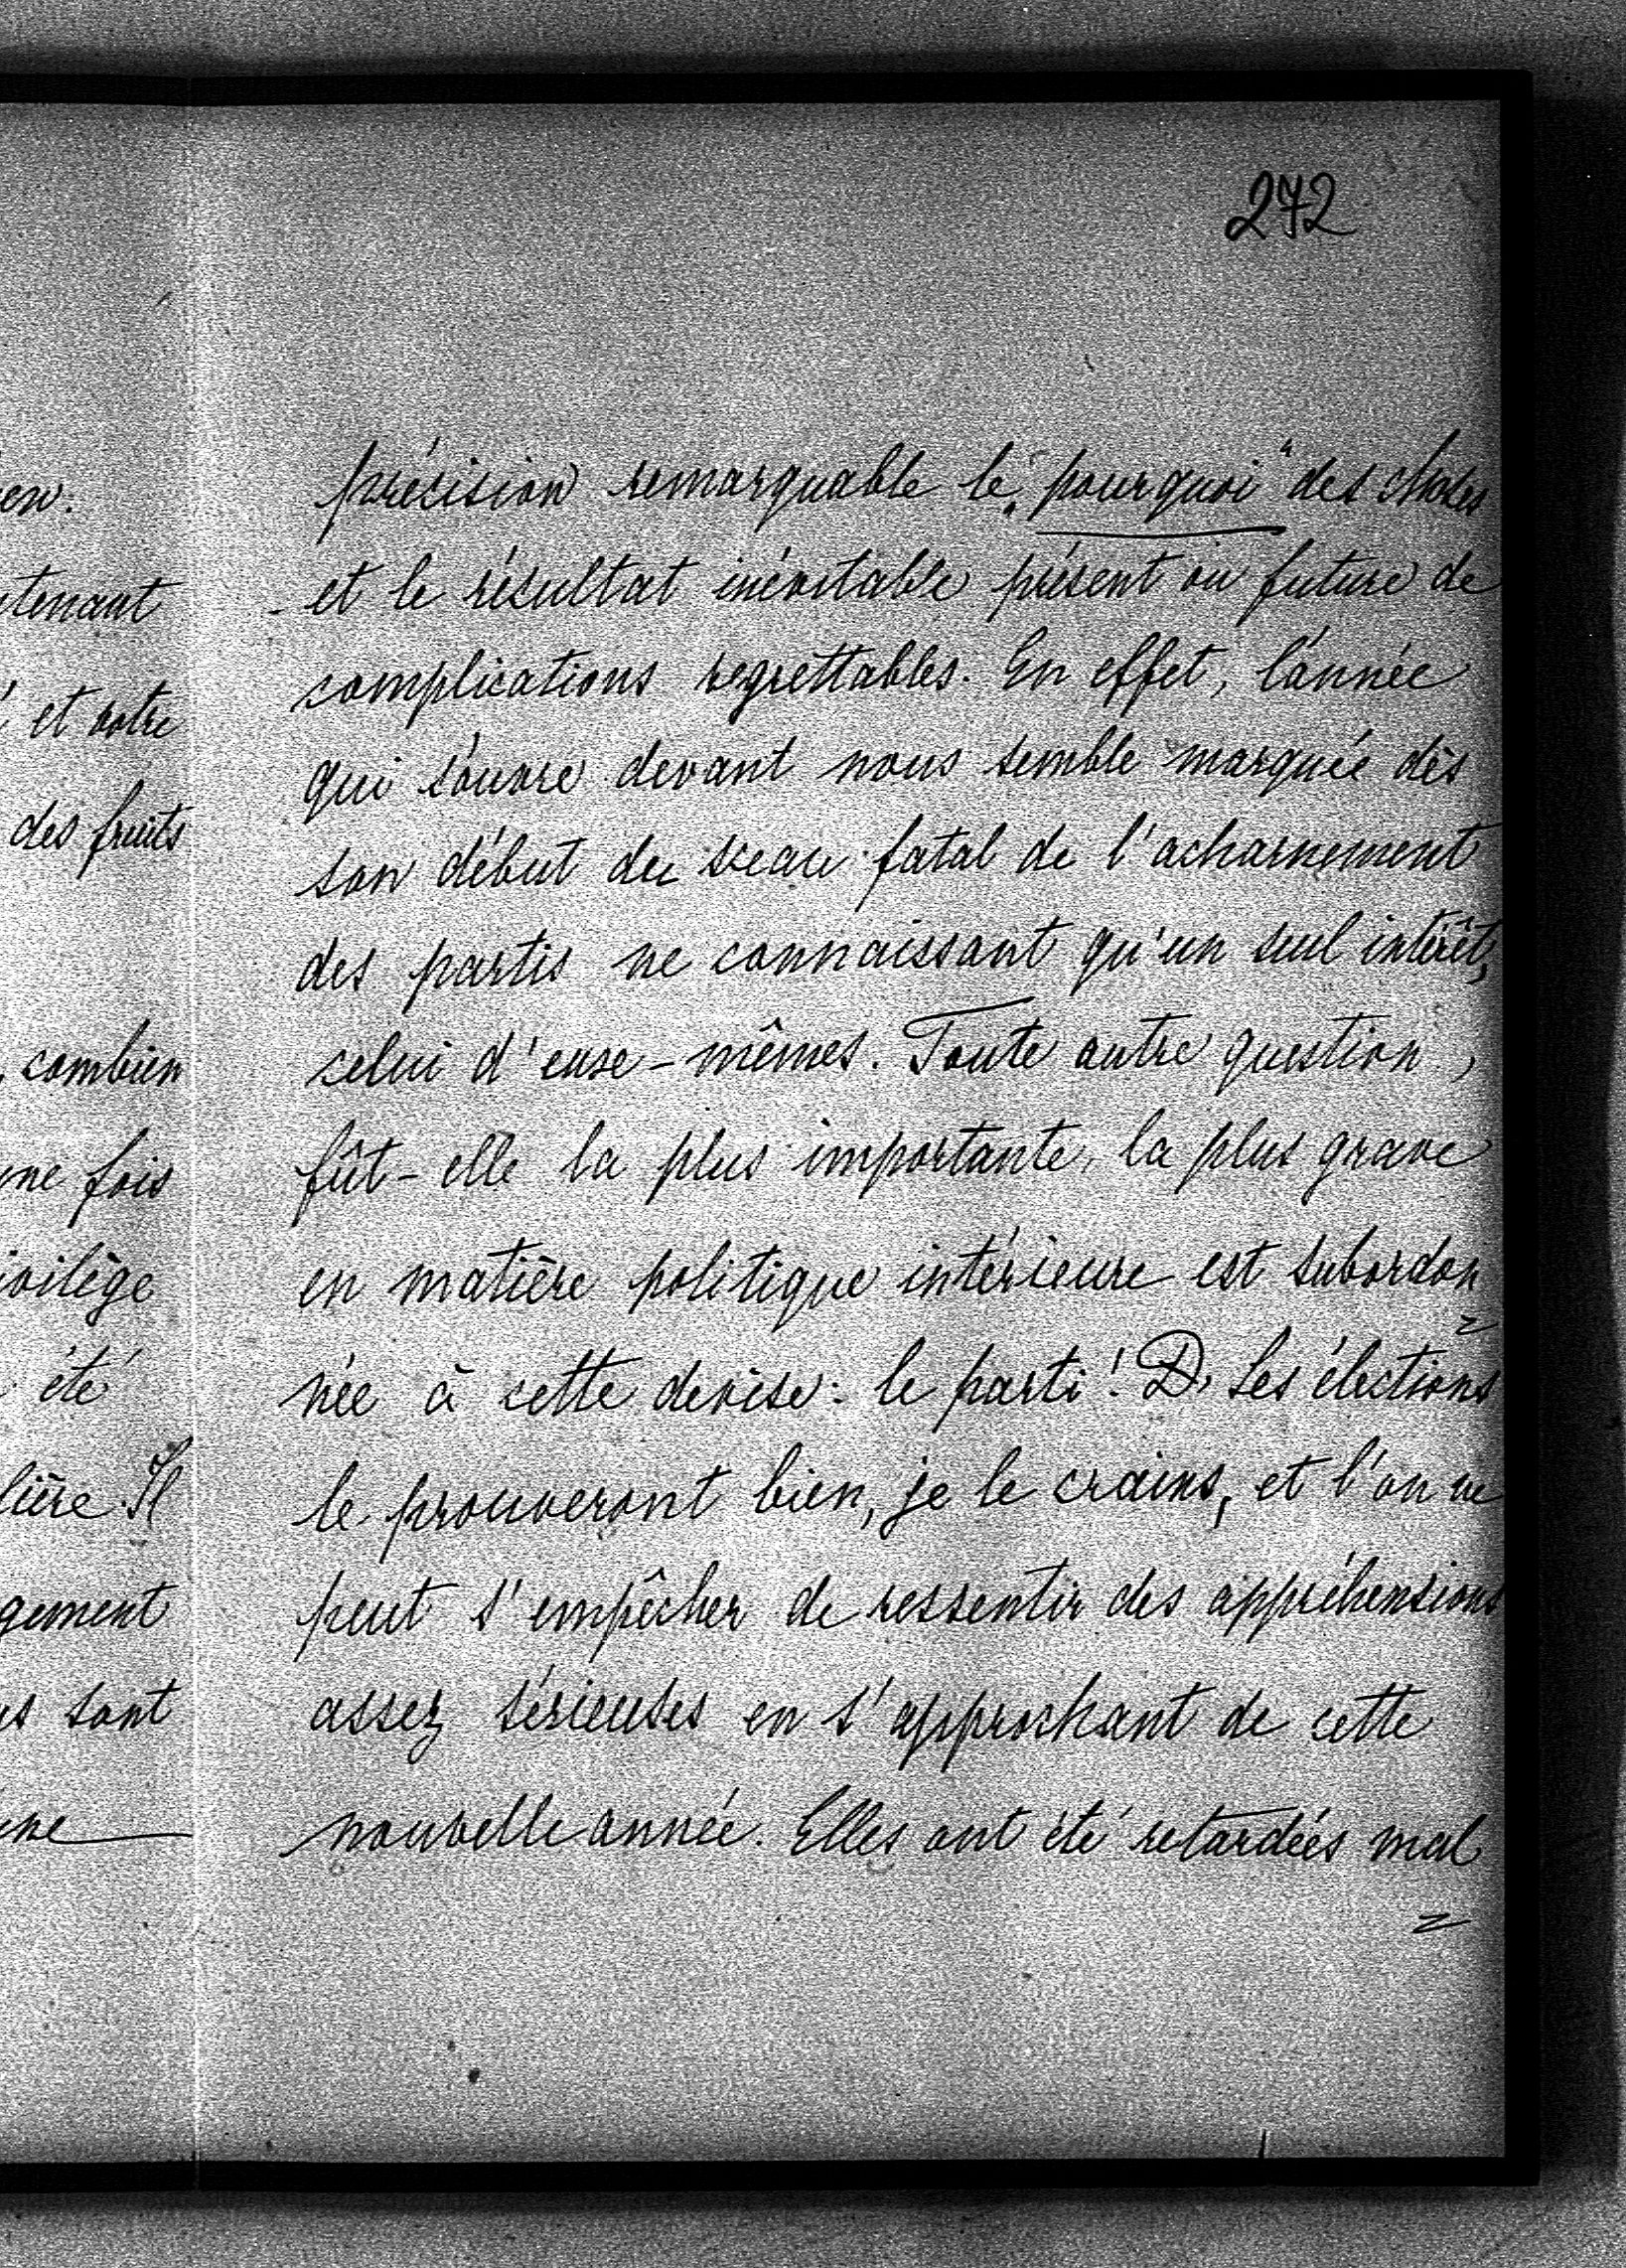 272
en.
tenant
et notre
des fruits
combien
ne fois
ivilège
été
lière. Il
gement
s sont
ne
précision remarquable le „pourquoi“ des choses
et le résultat inévitable présent ou future de
complications regrettables. En effet, l'année
qui s'ouvre devant nous semble marquée dès
son début du sceau fatal de l'acharnement
des partis ne connaissant qu'un seul intérêt,
celui d'eux-mêmes. Toute autre question,
fût-elle la plus importante, la plus grave
en matière politique intérieure est subordon=
née à cette devise: le parti! Les élections
le prouveront bien, je le crains, et l'on ne
peut s'empêcher de ressentir des appréhensions
assez sérieuses en s'approchant de cette
nouvelle année. Elles ont été retardées mal=